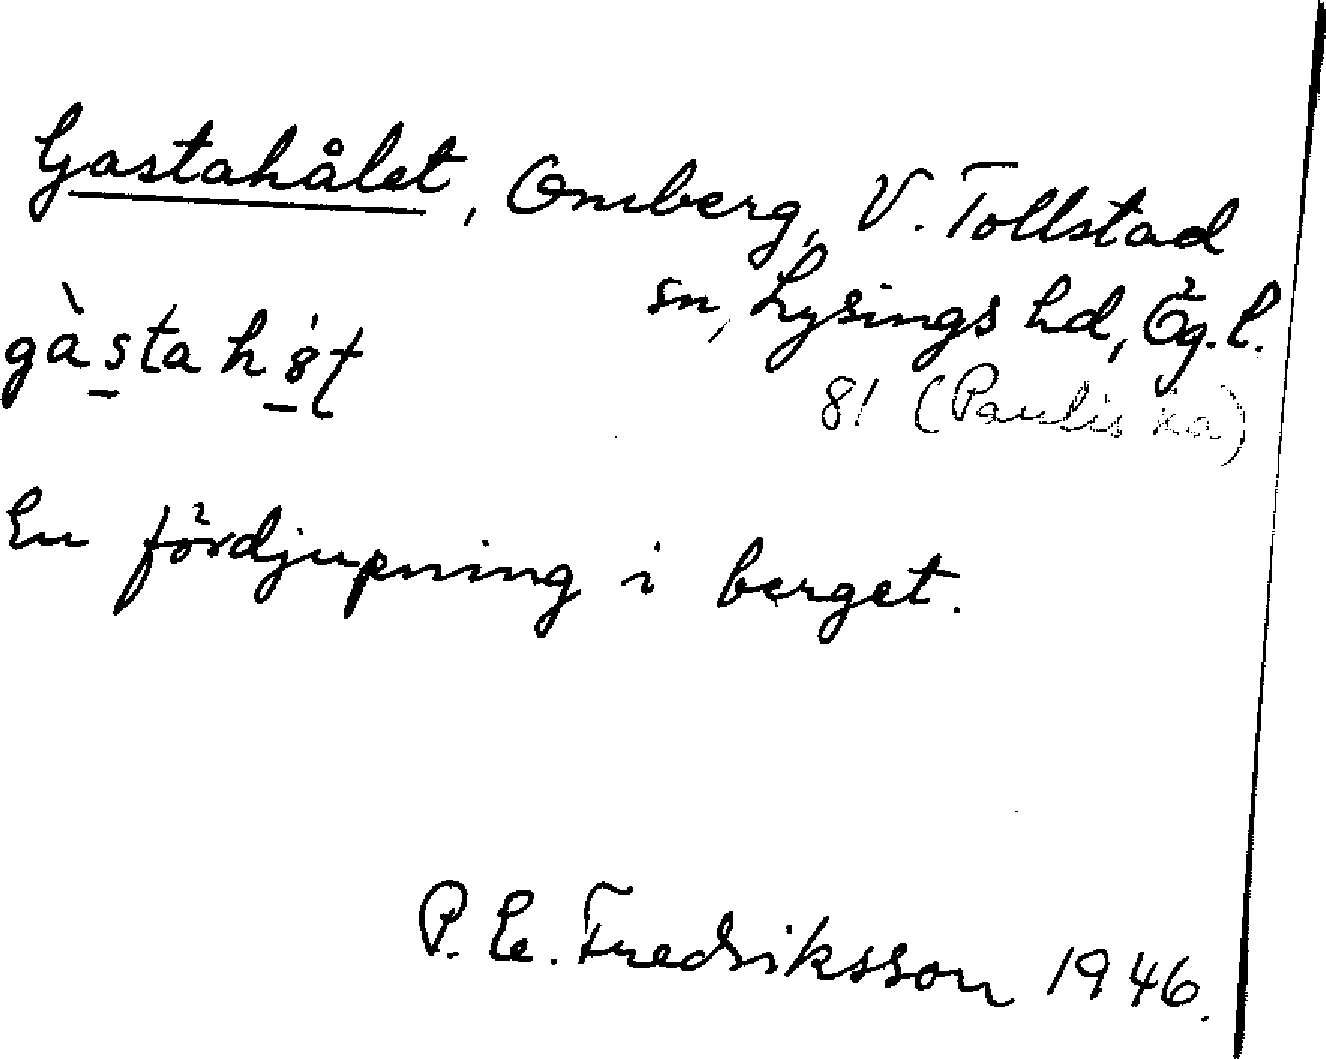 Gastahålet, Omberg, V. Tollstad
sn, Lysings hd, Ög. l.
gàstahȯ́ɫ
81 (Pauliska)
En fördjupning i berget.
P. E. Fredriksson 1946.